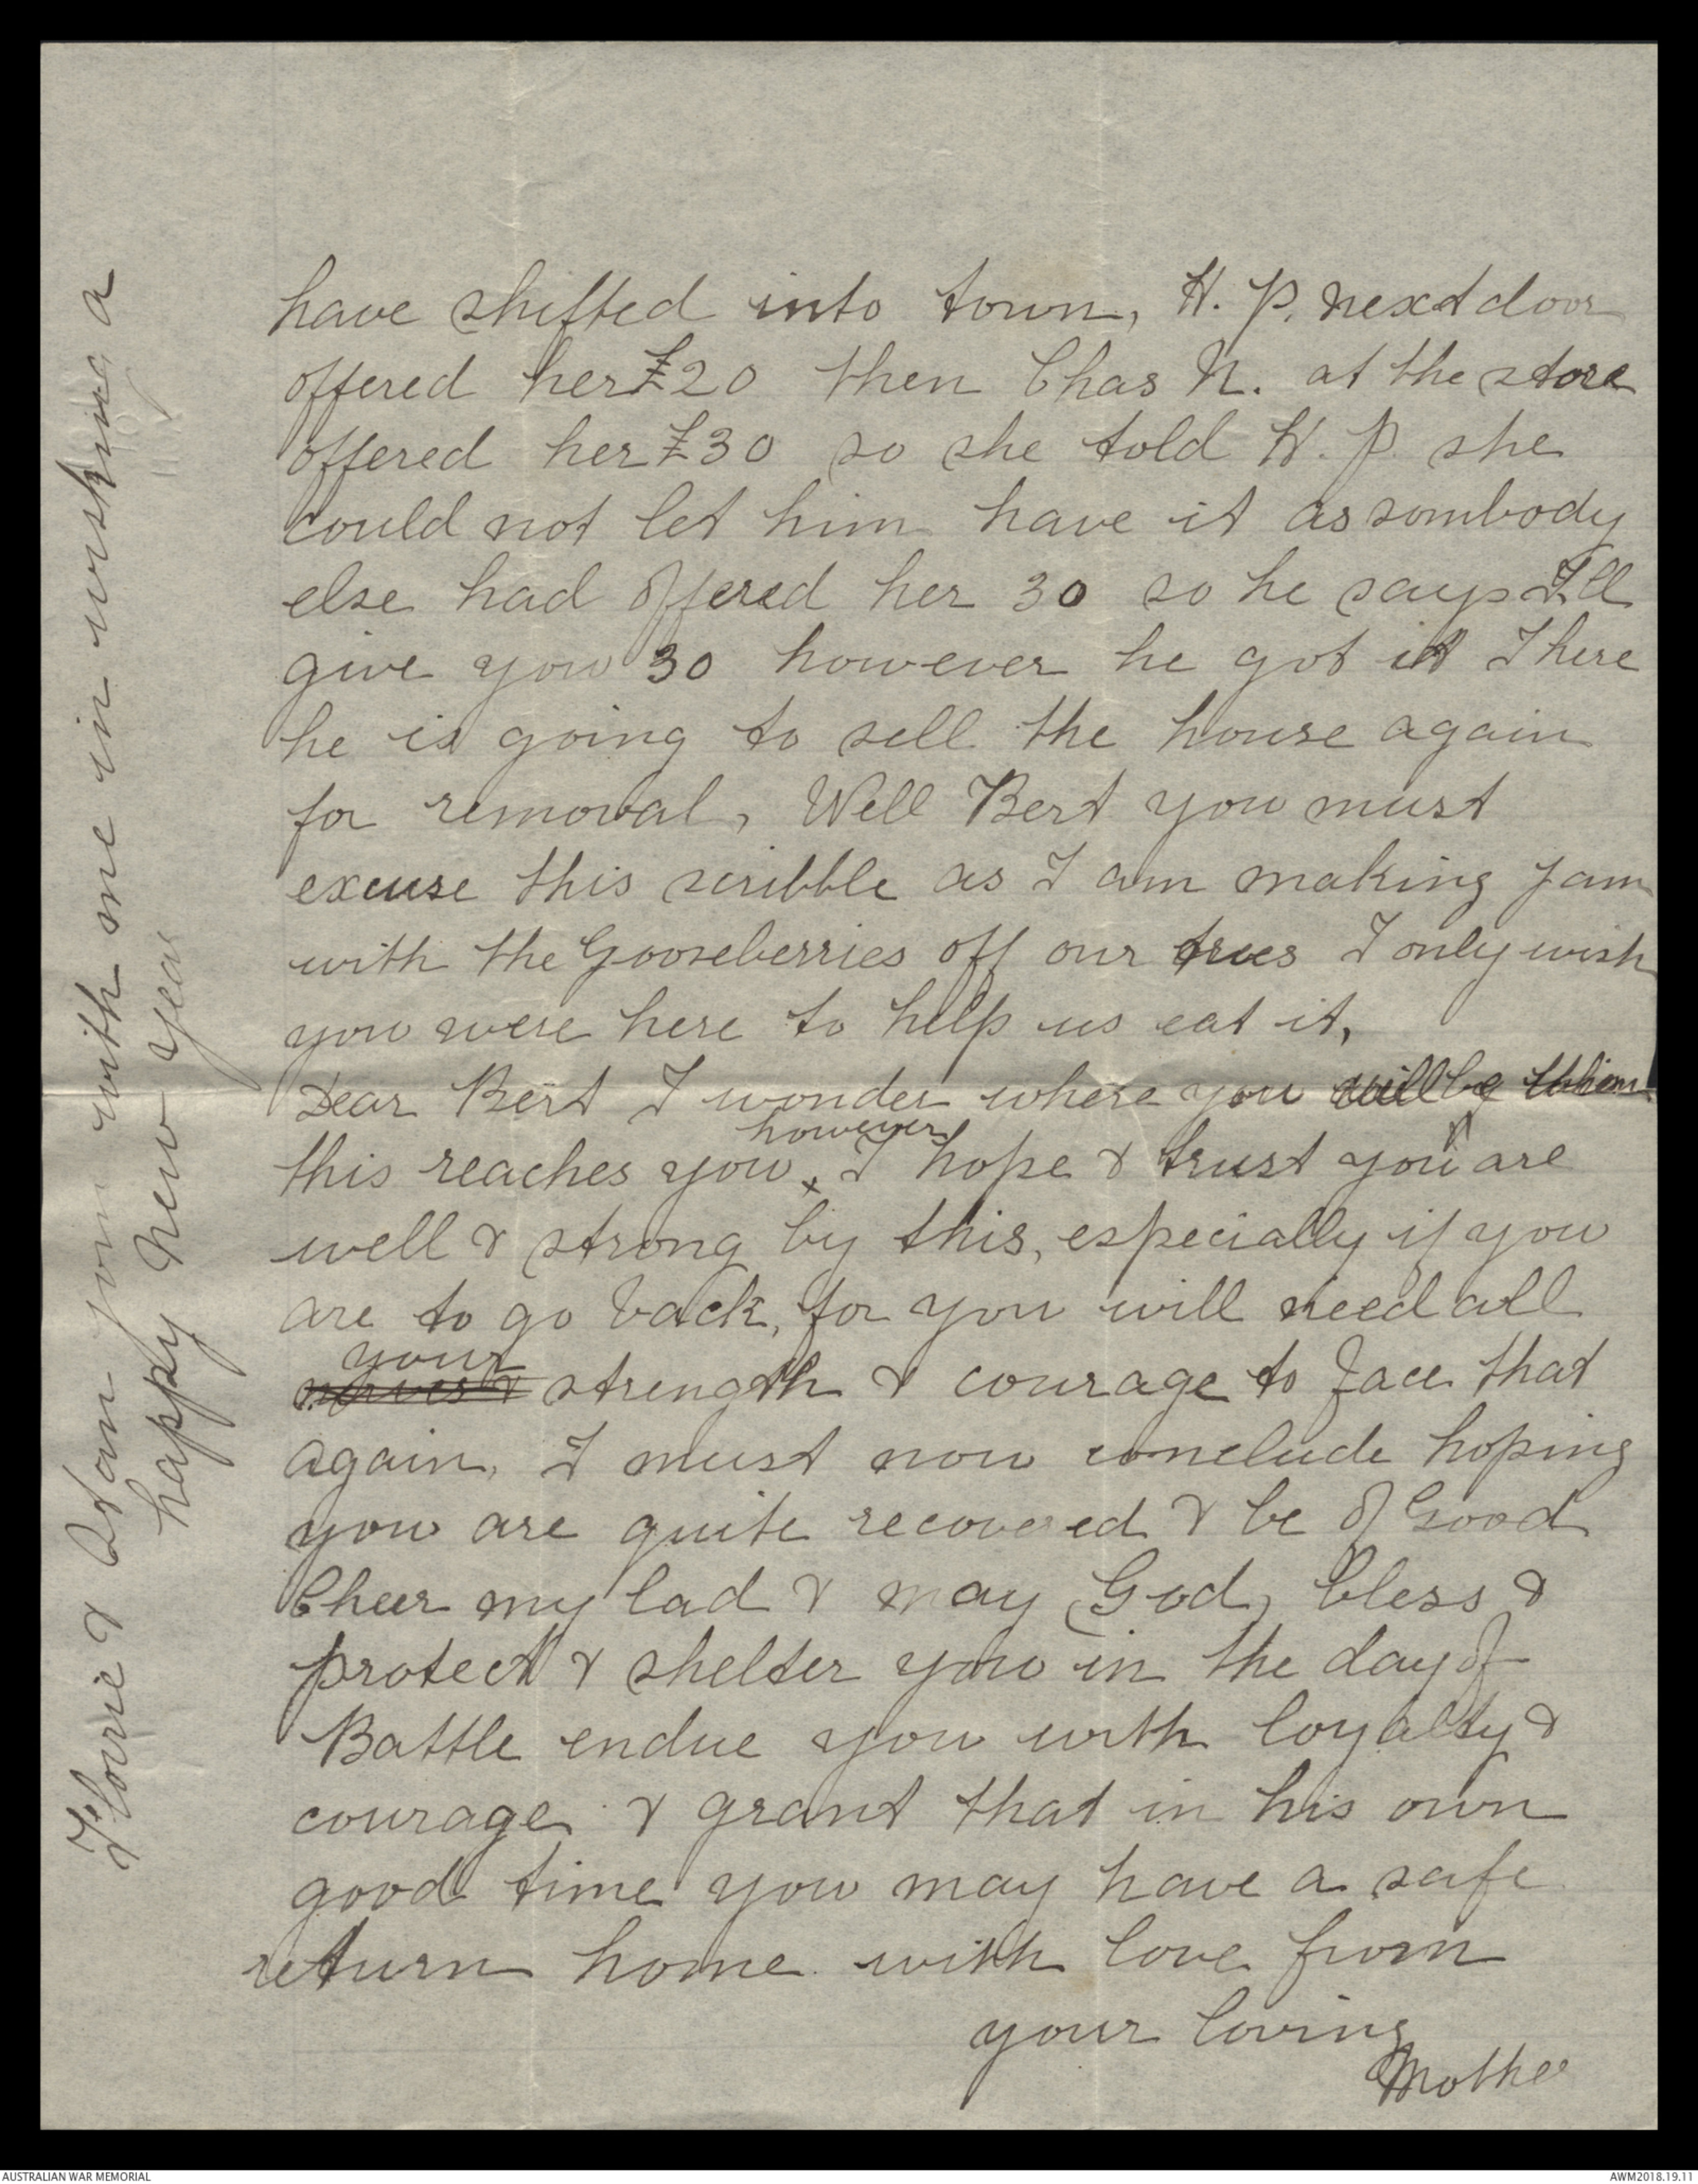 have shifted into town, H. P. next door
offered her £20 then Chas N. at the store
offered her £30 so she told H. P. she
could not let him have it as sombody
else had offered her 30 so he says I'll
give you 30 however he got it There
he is going to sell the house again
for removal, Well Bert you must
excuse this scribble as I am making Jam
with the Gooseberries off our trees I only wish
you were here to help us eat it,
Dear Bert I wonder where you will be when
however
this reaches you x I hope & trust you are
well & strong by this, especially if you
are to go back, for you will need all
your
strength & courage to face that
again, I must now conclude hoping
you are quite recovered & be of Good
Cheer my lad & may God, bless &
protect & shelter you in the day of
Battle endue you with loyalty &
courage & grant that in his own
good time you may have a safe
return home with love from
your loving
Mother
Florrie & Stan join with me in wishing a
happy New Year
AUSTRALIAN WAR MEMORIAL
AWM2018.19.11